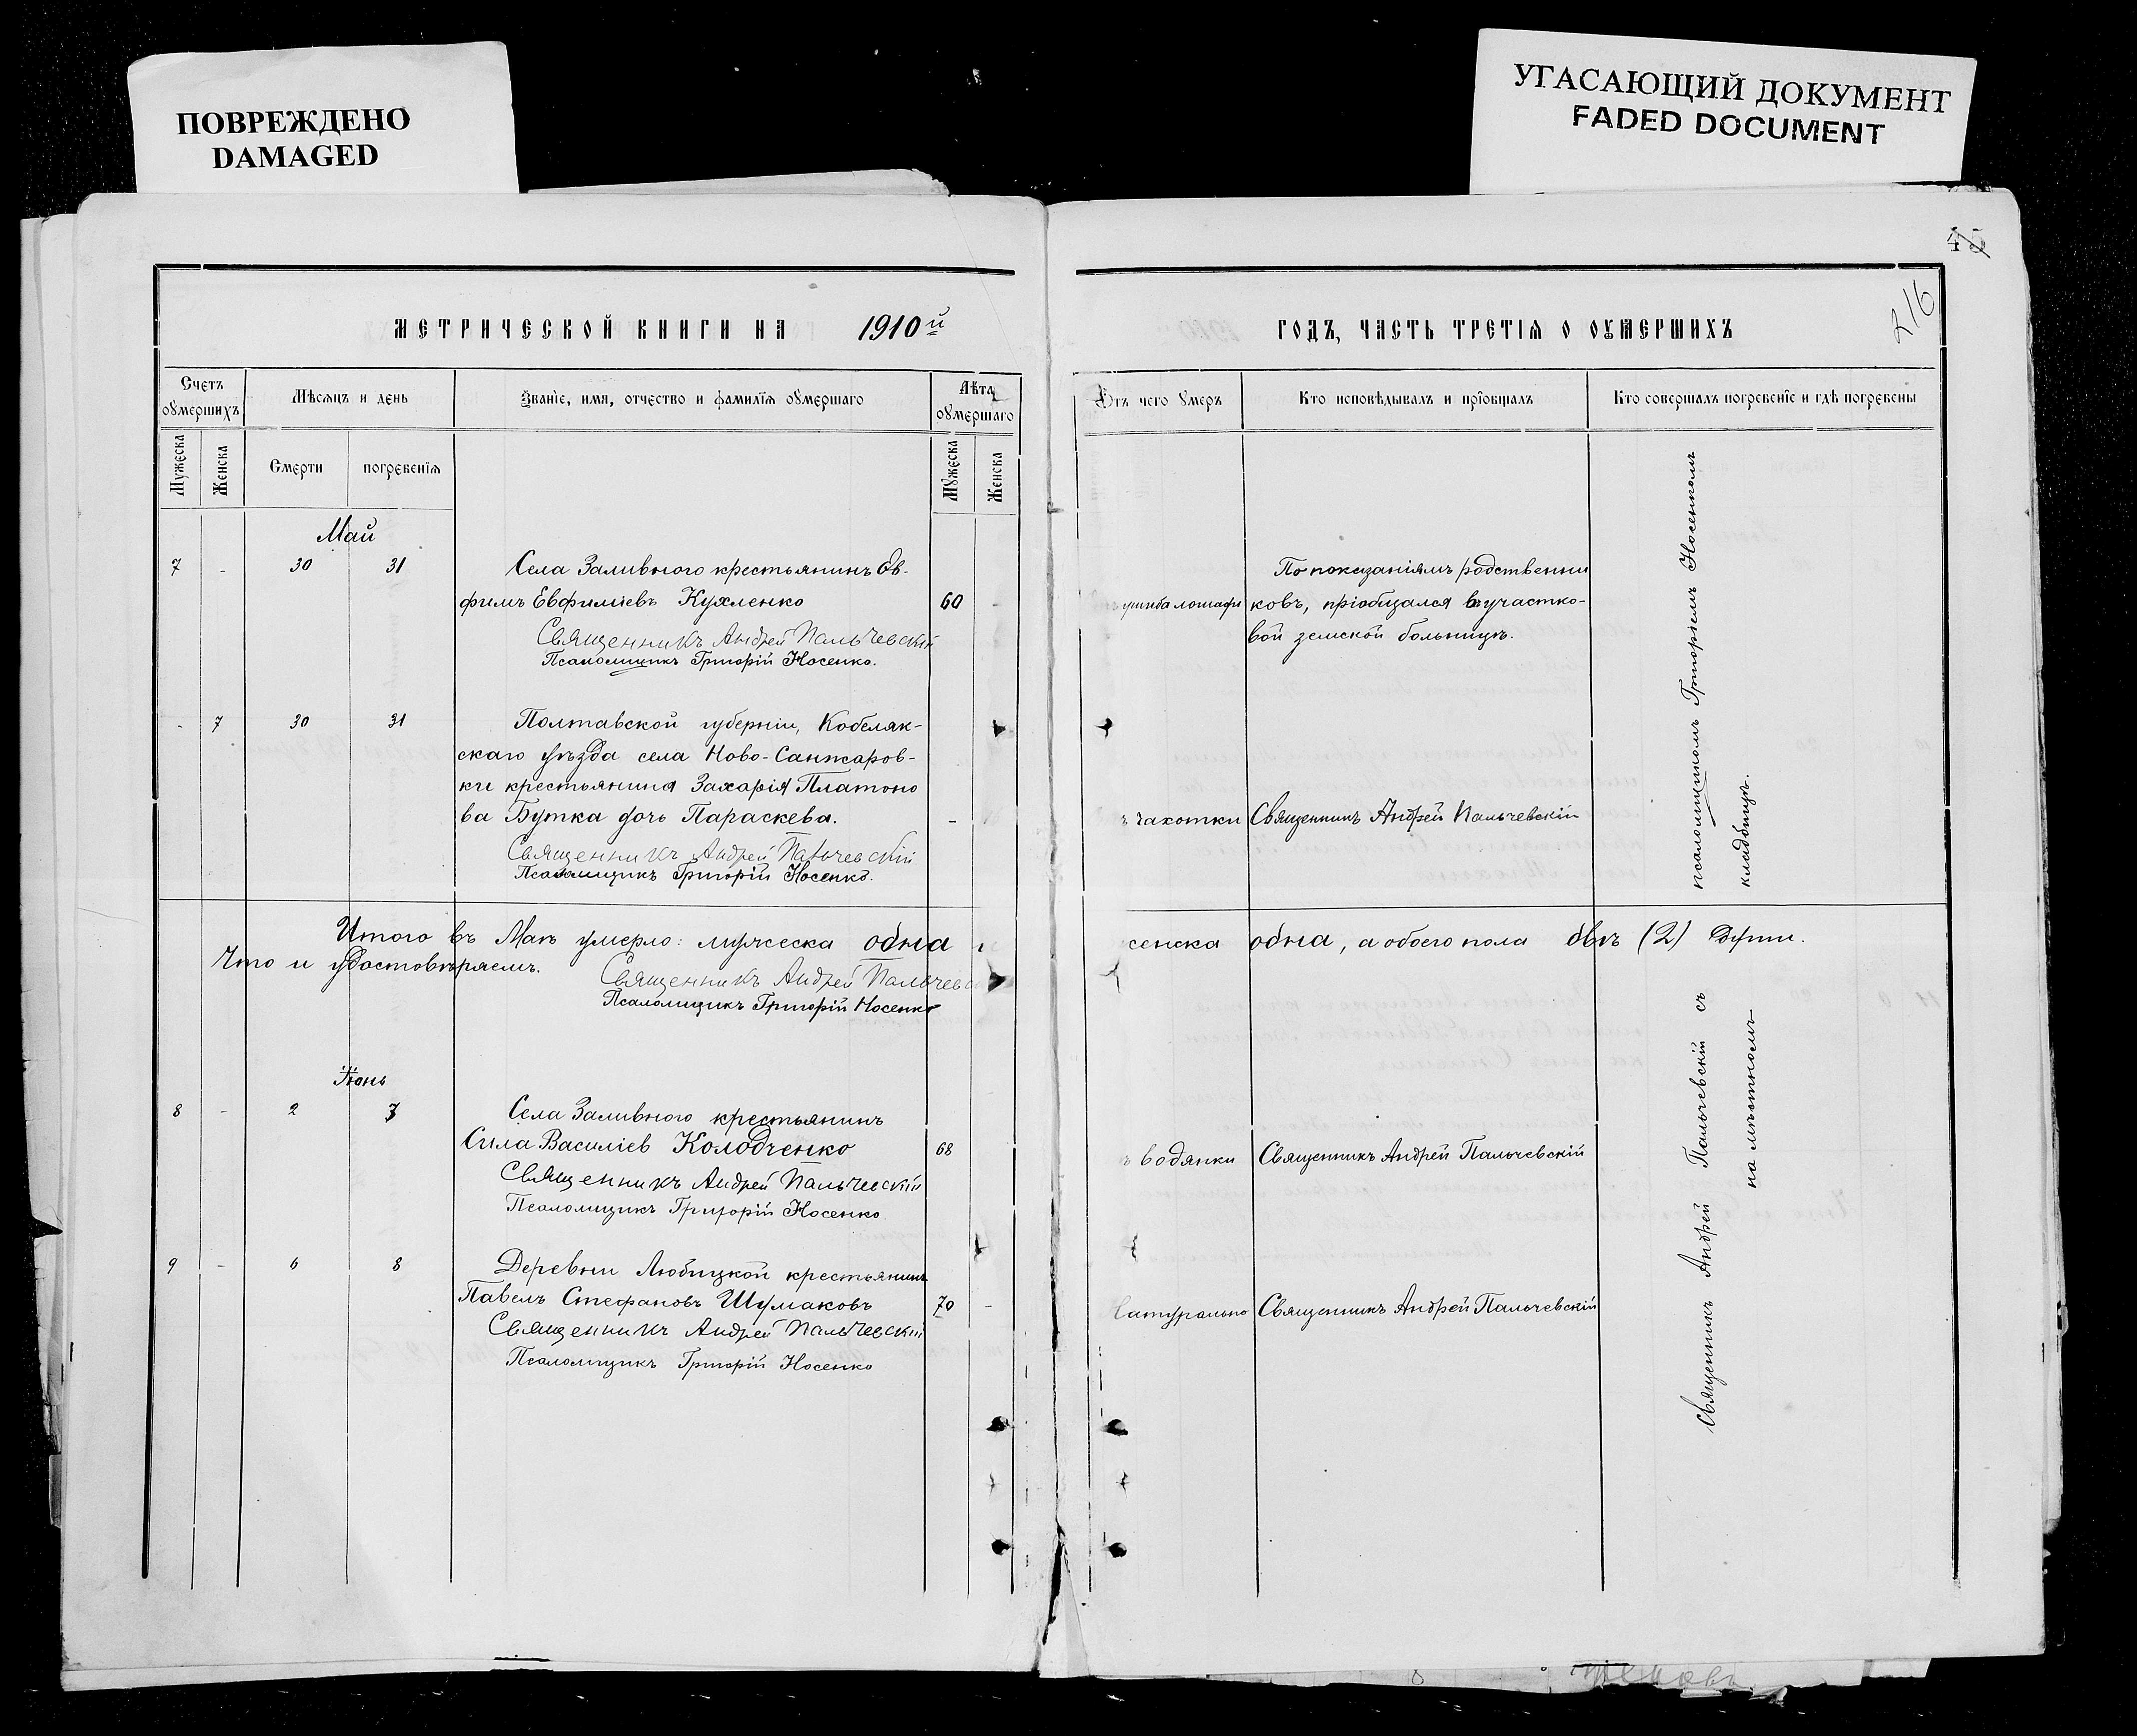 ПОВРЕЖДЕНО
DAMAGED
УГАСАЮЩИЙ ДОКУМЕНТ
FADED DOCUMENT
45
216
МЕТРИЧЕСКОЙ КНИГИ НА 1910й
ГОДЪ, ЧАСТЬ ТРЕТІЯ О ОУМЕРШИХЪ
Счетъ оумершихъ
Мѣсяцъ и день
Званіе, имя, отчество и фамилія оумершаго
Лѣта оумершаго
Отъ чего умеръ
Кто исповѣдывалъ и пріобщалъ
Кто совершалъ погребеніе и гдѣ погребены
Мужеска
Женска
Смерти
погребенія
Мужеска
Женска
Май
7 - 30 31 Села Заливного крестьянинъ Ев-
фимъ Евфиміевъ Кухленко 60 -
Священникъ Андрей Пальчевскій
Псаломщикъ Григорій Носенко.
По показаніямъ родственни
ушиба лошади ковъ, пріобщался въ участко-
вой земской больницѣ.
- 7 30 31 Полтавской губерніи, Кобеляк-
скаго уѣзда села Ново-Санжаров-
ки крестьянина Захарія Платоно
ва Бутка дочь Параскева. -
Священникъ Андрей Пальчевскій
Псаломщикъ Григорій Носенко.
чахотки Священникъ Андрей Пальчевскій
Итого въ Маѣ умерло: мужеска одна
женска одна, а обоего пола двѣ (2) души.
Что и удостовѣряемъ.
Священникъ Андрей Пальчевс
Псаломщикъ Григорій Носенко
Іюнь
8 - 2 3 Села Заливного крестьянинъ
Сила Василіев Колодченко 68
Священникъ Андрей Пальчевскій
Псаломщикъ Григорій Носенко
водянки Священникъ Андрей Пальчевскій
9 - 6 8 Деревни Любицкой крестьянинъ
Павелъ Стефановъ Шумаковъ 70 -
Священникъ Андрей Пальчевскій
Псаломщикъ Григорій Носенко
Натурально Священникъ Андрей Пальчевскій
Священникъ Андрей Пальчевскій съ псаломщикомъ Григоріемъ Носенкомъ
на мѣстномъ кладбищѣ.